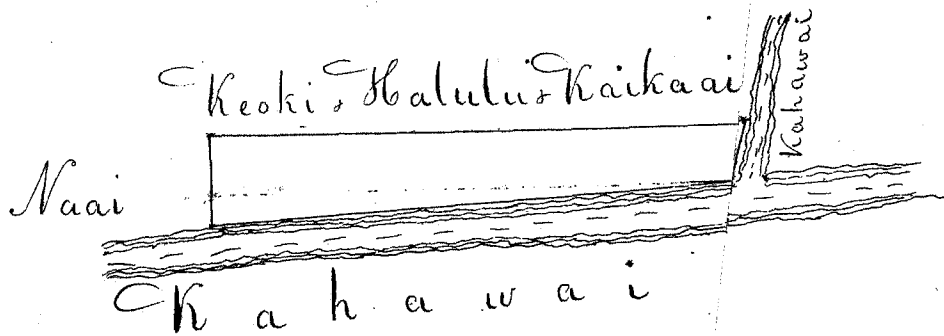 Keoki & Halulu & Kaikaai
Kahawai
Naai
Kahawai